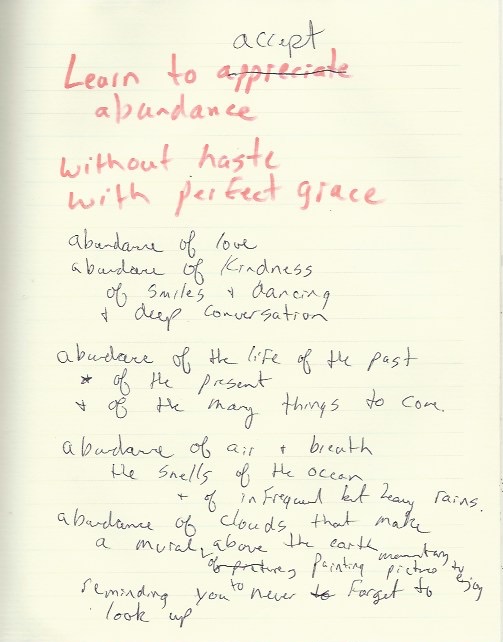 accept
Learn to appreciate
abundance
without haste
with perfect grace
abundance of love
abundance of kindness
of smiles + dancing
+ deep conversation
abundance of the life of the past
* of the present
+ of the many things to come.
abundance of air + breath
the smells of the ocean
+ of infrequent but heavy rains.
abundance of clouds that make
a mural above the earth
of pictures painting picture momentary to enjoy
reminding you to never to forget to
look up